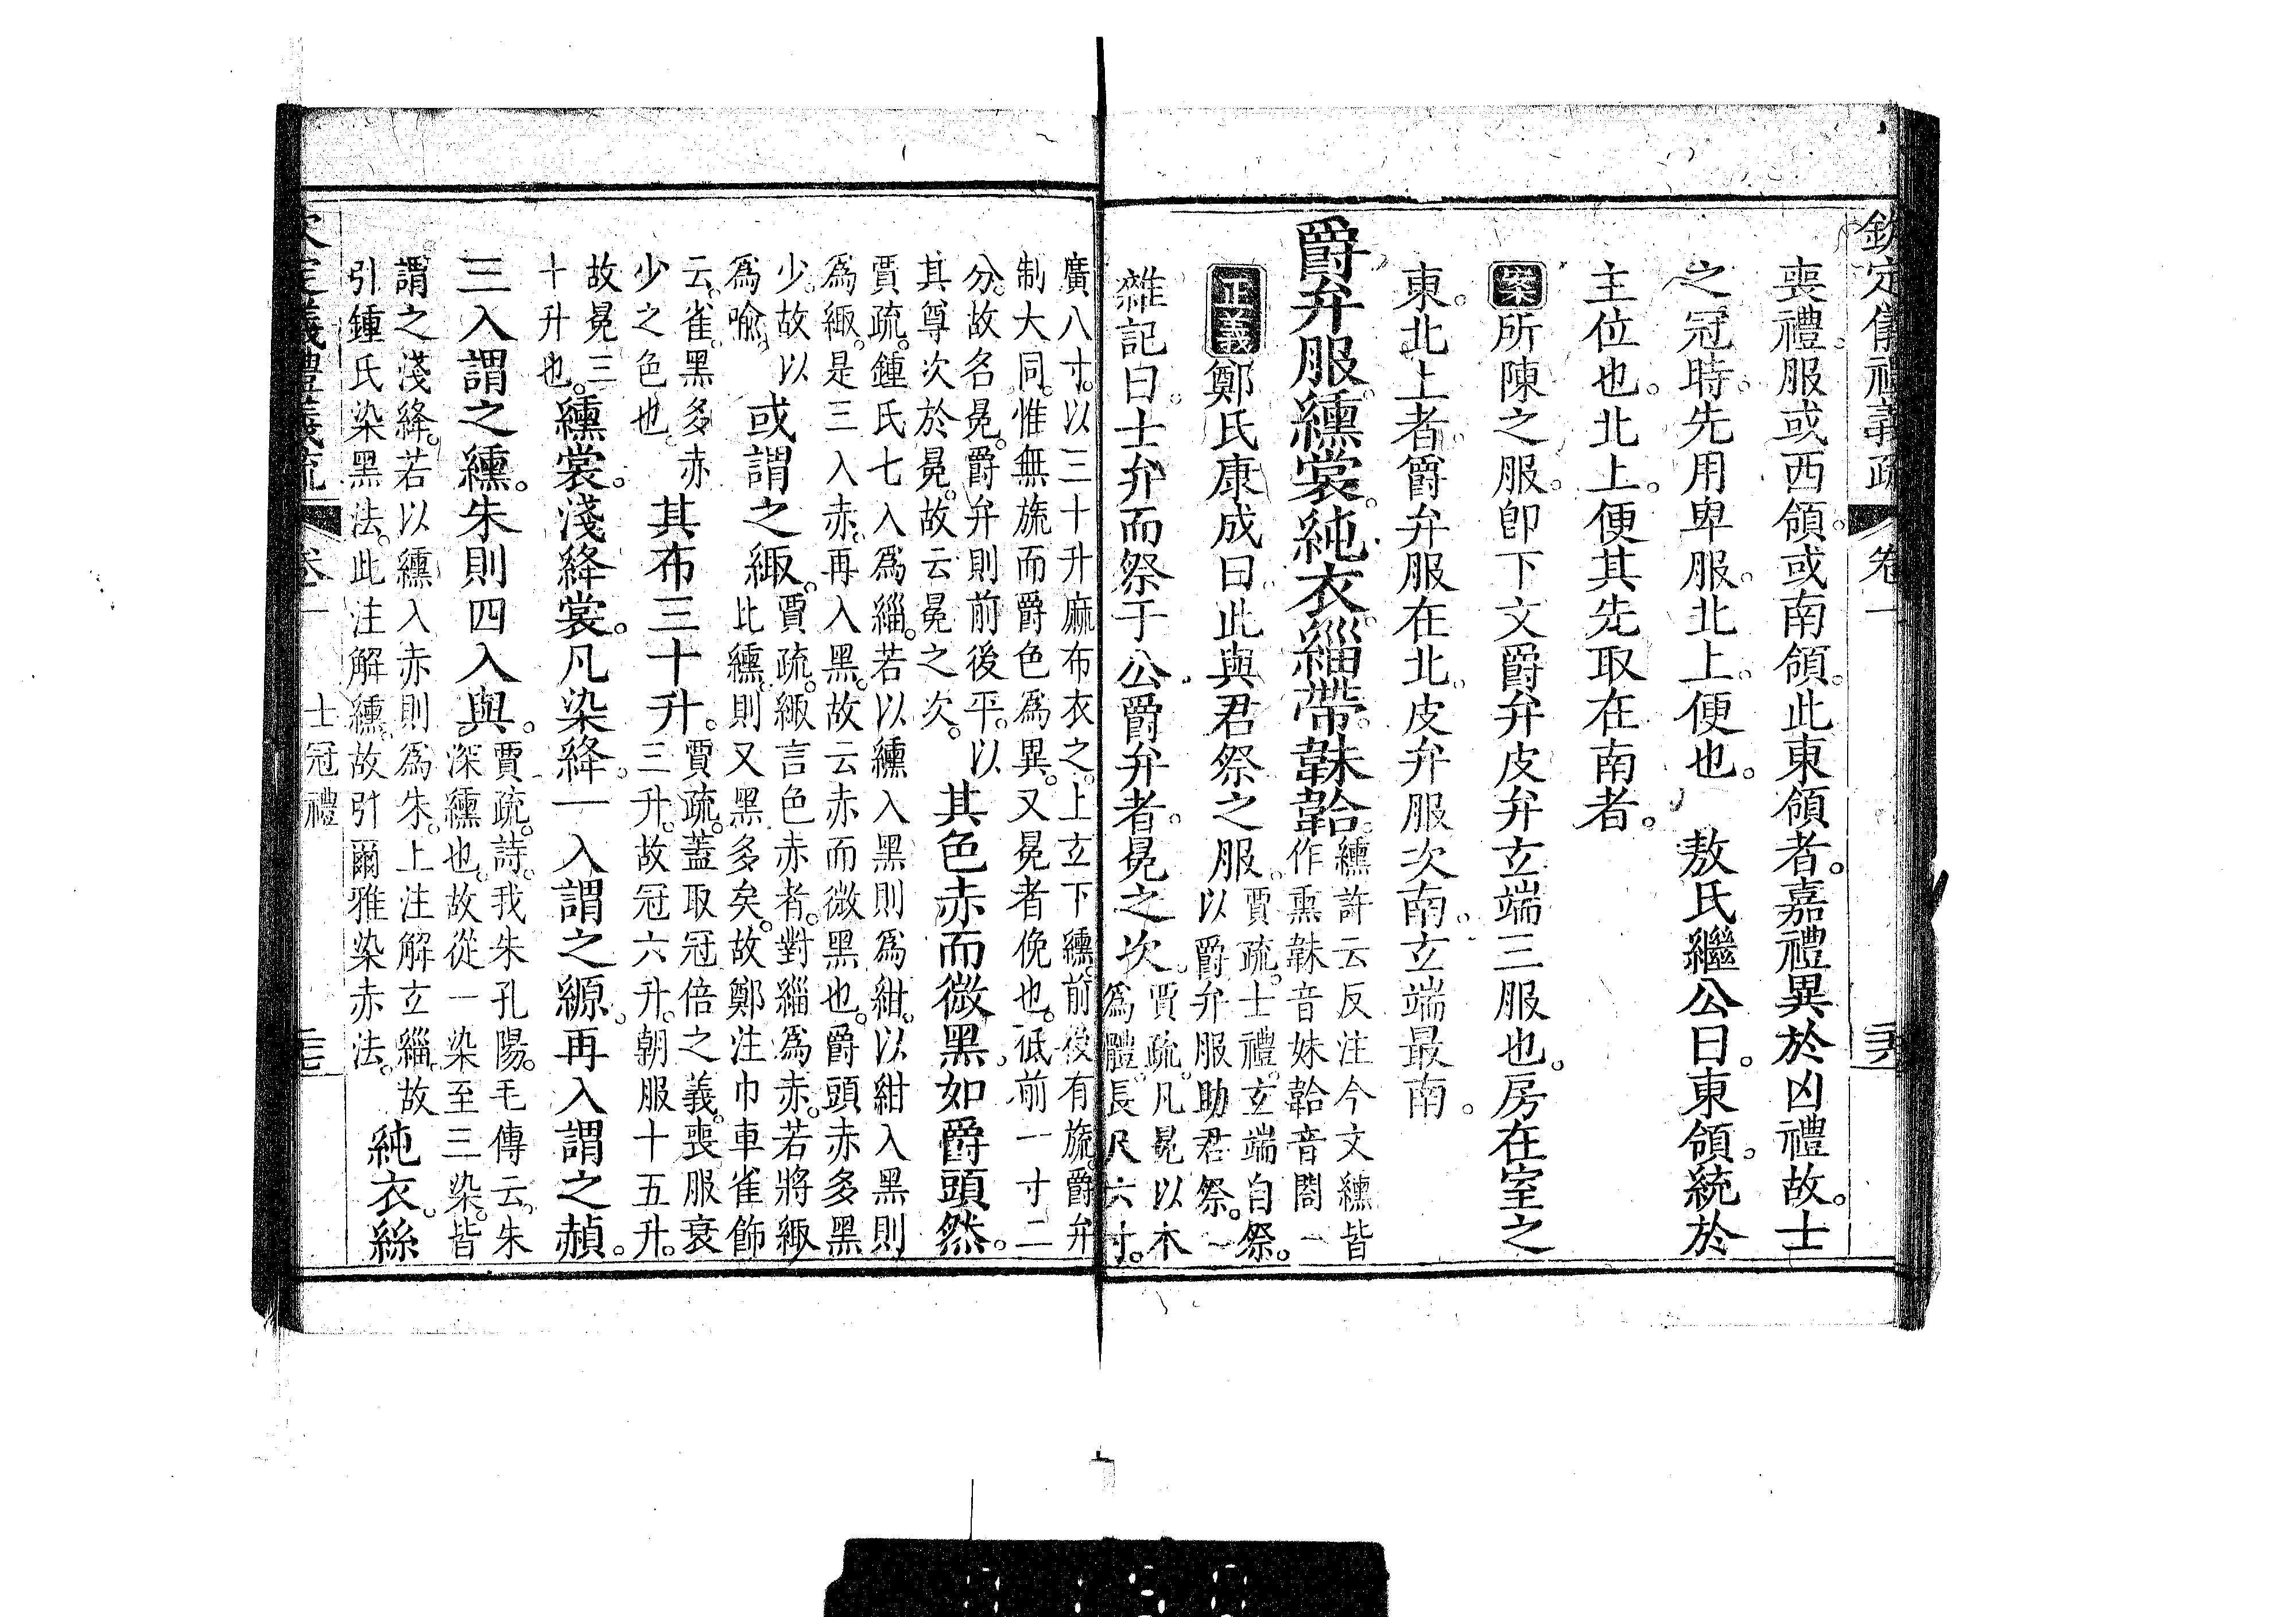 欽定儀禮義疏 卷一 二六
喪禮。服或西領。或南領。此東領者。嘉禮異於凶禮故。士
之冠時。先用卑服。北上。便也。 敖氏繼公曰。東領。統於
主位也。北上。便其先取在南者。
案所陳之服。卽下文爵弁皮弁玄端三服也。房在室之
東。北上者。爵弁服在北。皮弁服次南。玄端最南。
爵弁服。纁裳。純衣。緇帶。韎韐。
纁許云反注今文纁皆
作熏韎音妹韐音閤
正義鄭氏康成曰。此與君祭之服。
賈疏。士禮。玄端自祭。
以爵弁服助君祭。
雜記曰。士弁而祭于公。爵弁者。冕之次。
賈疏。凡冕以木
爲體。長尺六寸。
廣八寸。以三十升麻布衣之。上玄下纁。前後有旒。爵弁
制大同。惟無旒而爵色爲異。又冕者俛也。低前一寸二
分。故名冕。爵弁則前後平。以
其尊次於冕。故云冕之次。
其色赤而微黑。如爵頭然。
賈疏。鍾氏七入爲緇。若以纁入黑則爲紺。以紺入黑則
爲緅。是三入赤。再入黑。故云赤而微黑也。爵頭赤多黑
少。故以
爲喩。
或謂之緅。
賈疏。緅言色赤者。對緇爲赤。若將緅
比纁。則又黑多矣。故鄭注巾車雀飾
云。雀。黑多赤
少之色也。
其布三十升。
賈疏。蓋取冠倍之義。喪服衰
三升。故冠六升。朝服十五升。
故冕三
十升也。
纁裳。淺絳裳。凡染絳。一入謂之縓。再入謂之赬。
三入謂之纁。朱則四入與。
賈疏。詩。我朱孔陽。毛傳云。朱
深纁也。故從一染至三染。皆
謂之淺絳。若以纁入赤則爲朱。上注解玄緇。故
引鍾氏染黑法。此注解纁。故引爾雅染赤法。
純衣。絲
欽定儀禮義疏 卷一 士冠禮 二七